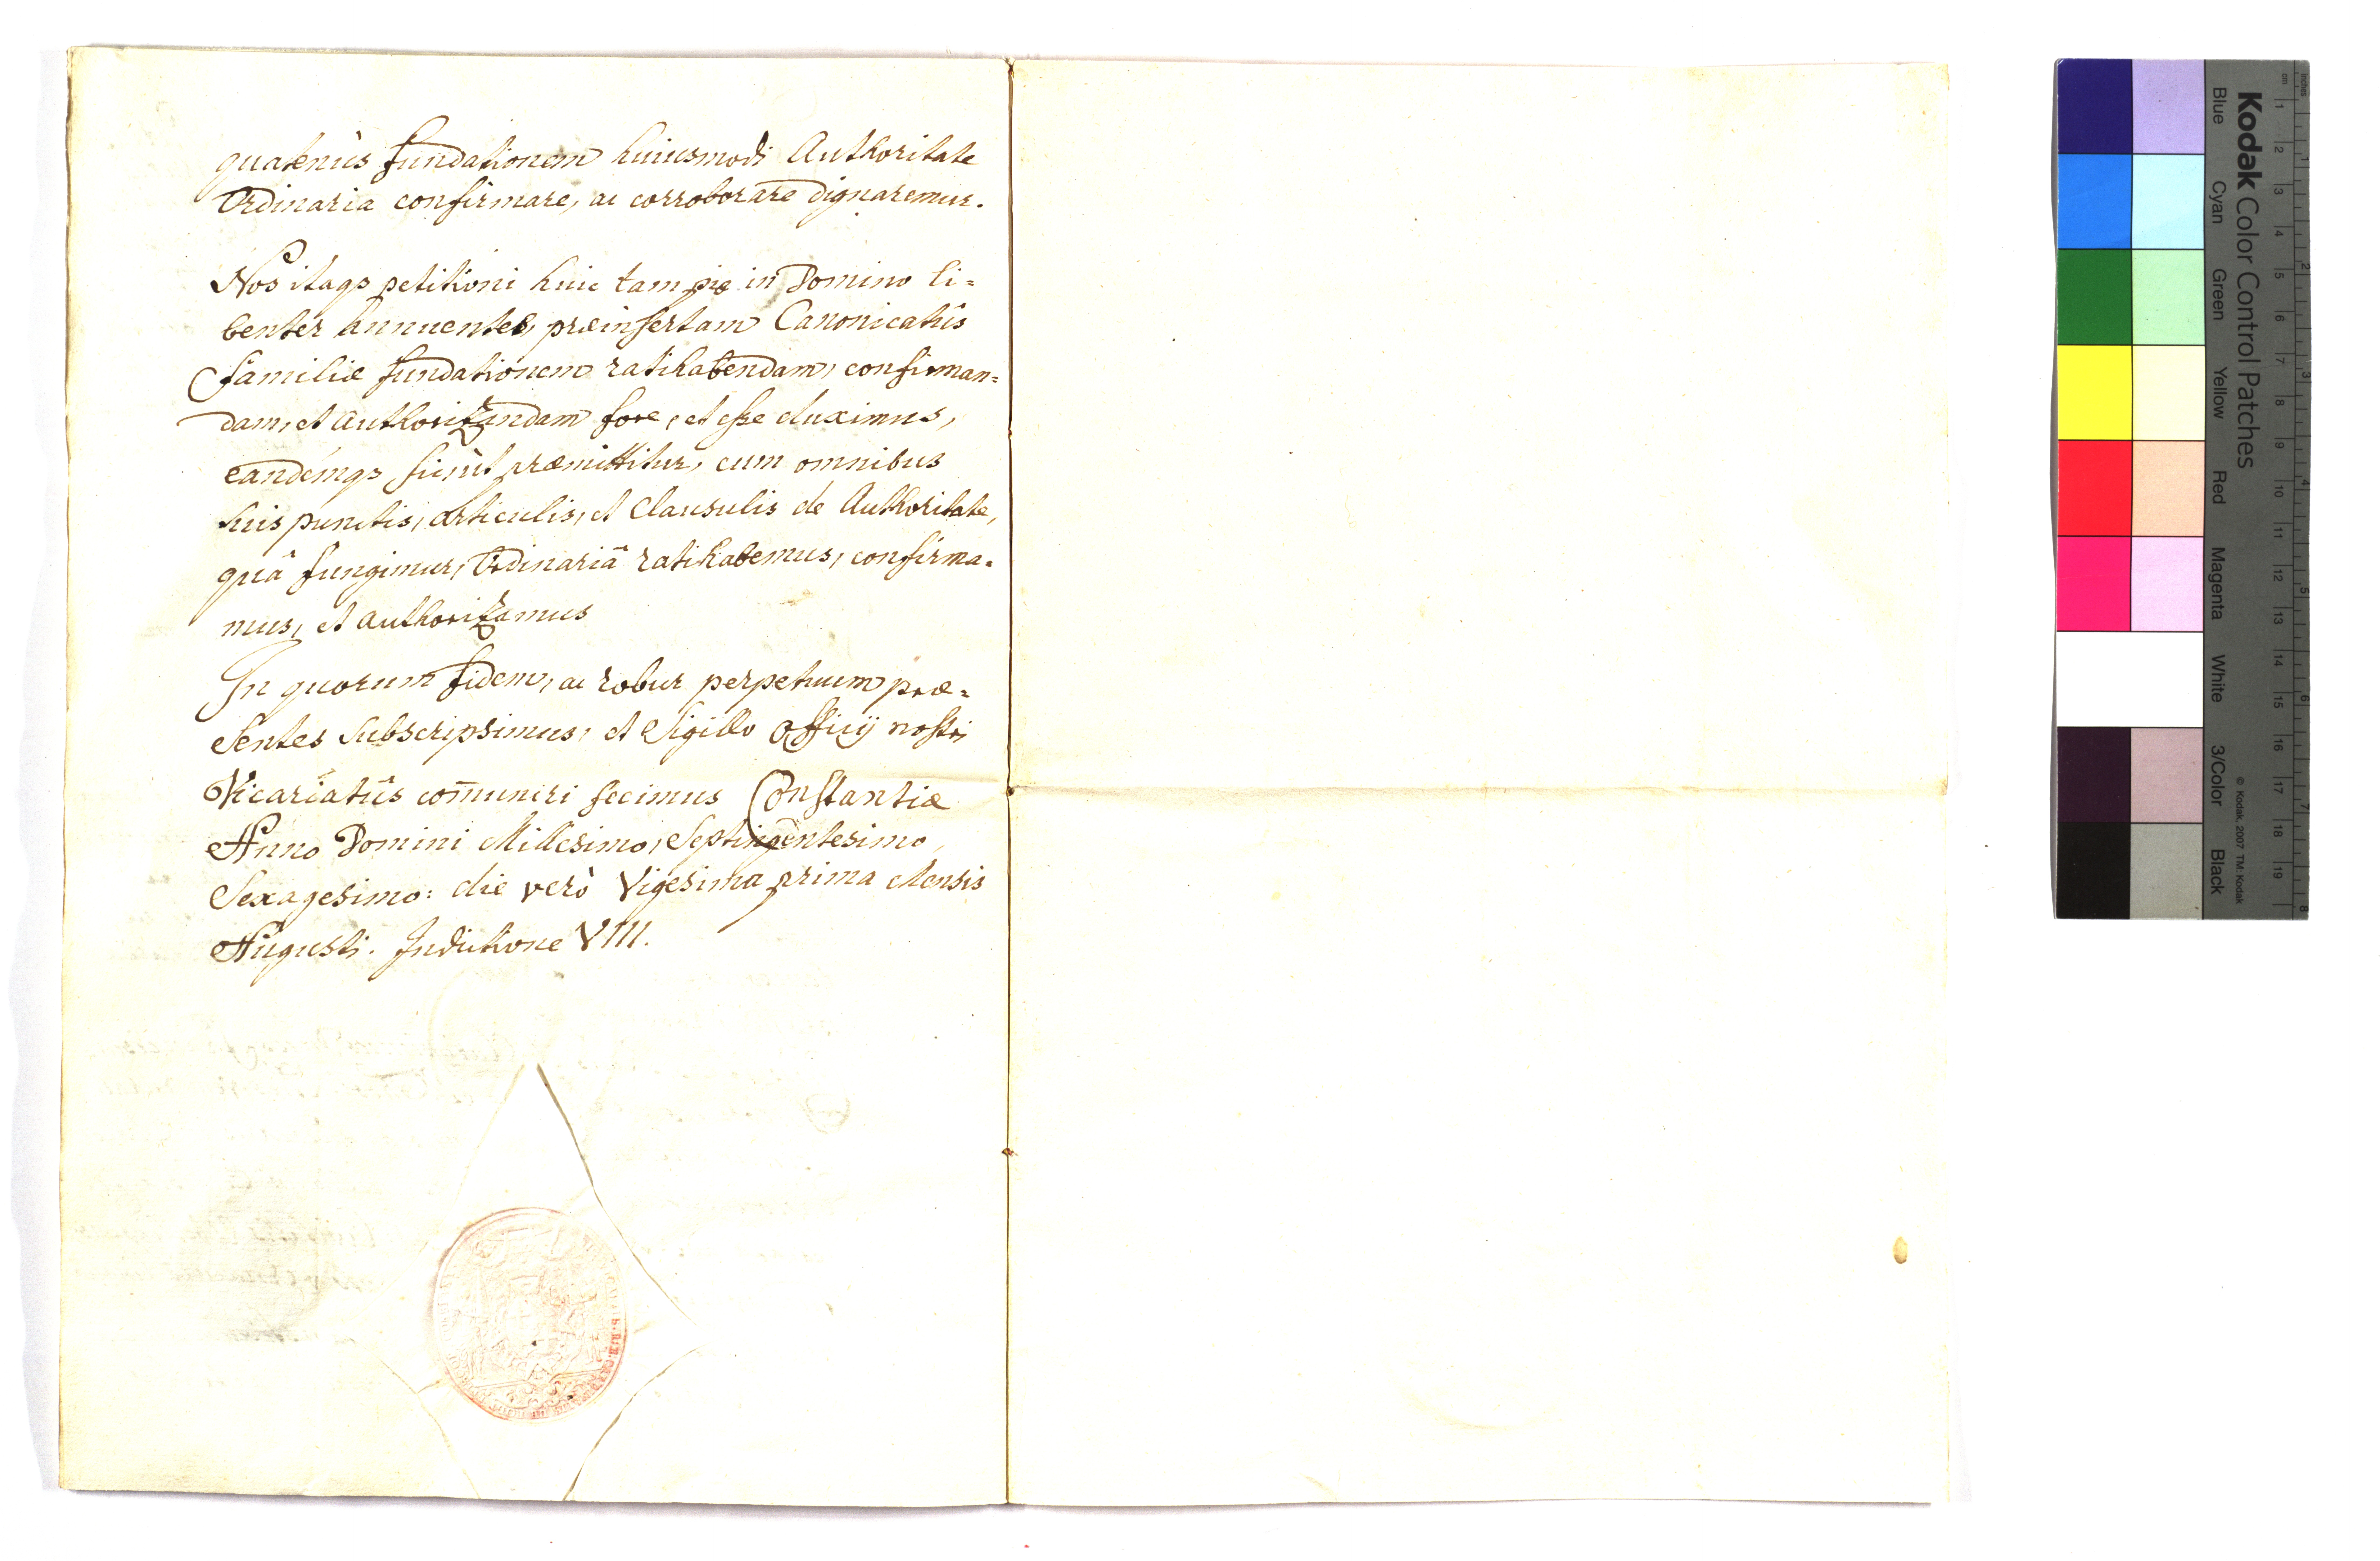 quatenùs fundationem huiusmodi Authoritate
Ordinaria confirmare, ac corroborare dignaremur.
Nos itaq3 petitioni huic tam piæ in Domino li=
benter annuentes, præinsertam Canonicatûs
familiæ fundationem ratihabendam, confirman=
dam, et authorizandam fore, et esse duximus,
eandémq3 sicut præmittitur, cum omnibus
suis punctis, articulis, et Clausulis de Authoritate,
quâ fungimur, Ordinariâ ratihabemus, confirma=
mus, et authorizamus
In quorum fidem, ac robur perpetuum præ=
sentes subscripsimus, et Sigillo Officij nostri
Vicariatûs com̄uniri fecimus Constantiæ
Anno Domini Millesimo, Septingentesimo,
Sexagesimo: die verò Vigesima prima Mensis
Augusti. Indictione VIII.
Kodak Color Control Patches
Blue Cyan Green Yellow Red Magenta White 3/Color Black
© Kodak, 2007 TM: Kodak
cm 1 2 3 4 5 6 7 8 9 10 11 12 13 14 15 16 17 18 19
Inches 1 2 3 4 5 6 7 8